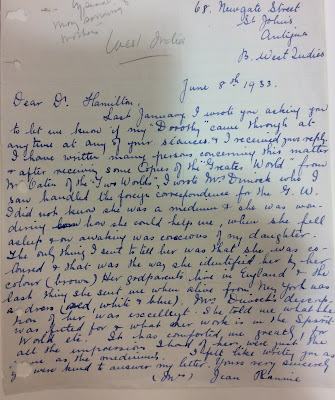 68, Newgate Street
St John's
Antigua
B. West Indies
mourning
mothers
West Indies
June 8th 1933.
Dear Dr. Hamilton,
Last January I wrote you asking you
to let me know if my "Dorothy" came through at
any time at any of your seances & I received your reply.
I have written many persons concerning this matter
& after receiving some Copies of the "Greater World" from
Mr Oaten of the "Two Worlds", I wrote Mrs who I
saw handled the foreign correspondence for the G. W.
I did not know she was a medium & she was won-
dering how she could help me, when she fell
asleep & on awaking was conscious of my daughter.
The only thing I sent to tell her was that she was co-
loured & that was the way she identified her by her
colour (brown) Her godparents live in England & the
last thing she sent me when alive from New York was
a dress (red, white & blue). Mrs descrip-
tion of her was excellent. She told me what she
was suited for & what her work is in the Spirit
World etc. It has comforted me greatly for
all the impressions I had of her, were just the
same as the mediums. I felt like writing you as
you were kind to answer my letter. Yours very sincerely
(Mrs) Jean